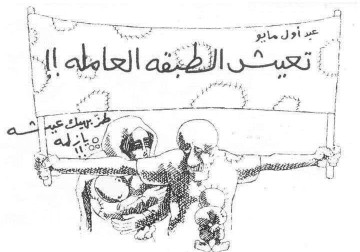 عيد أول مايو
تعيش الطبقه العامله !!
طز بهيك عيشه
يا زلمه !!